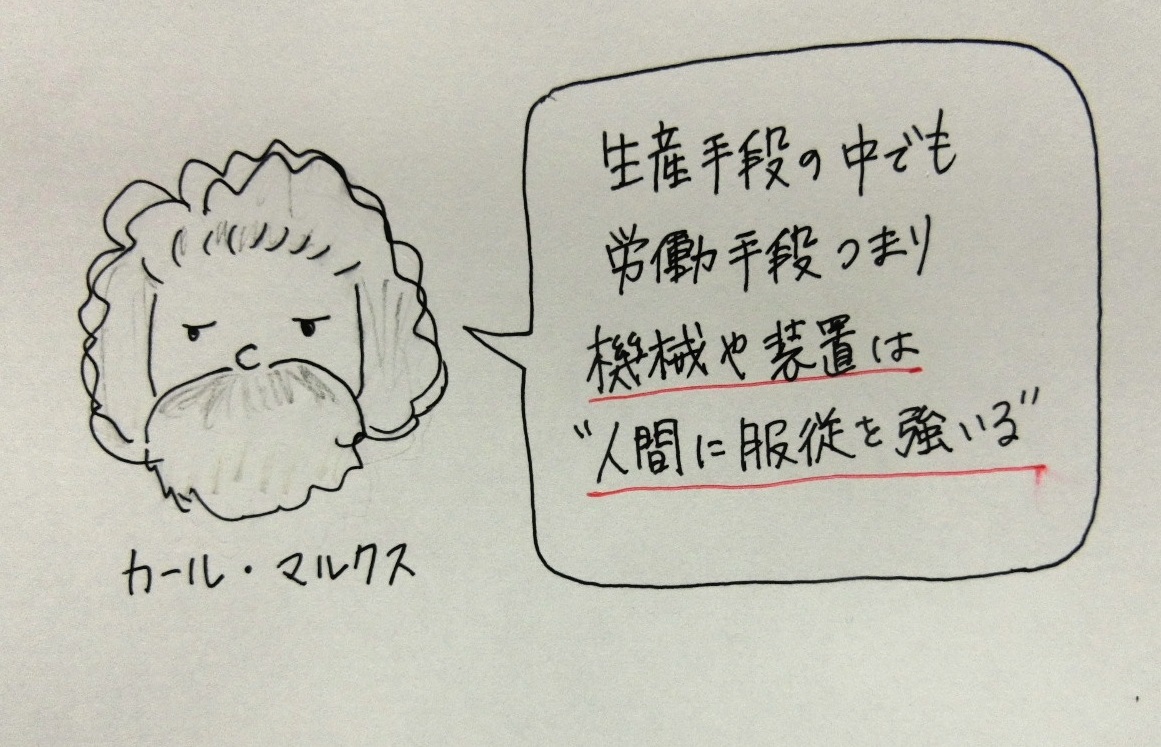 生産手段の中でも
労働手段つまり
機械や装置は
"人間に服従を強いる"
カール・マルクス